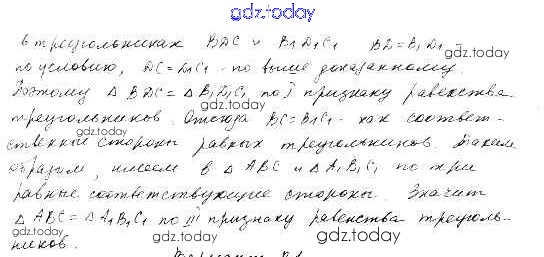 gdz.today
в треугольниках BDC и B₁D₁C₁ BD=B₁D₁ -
по условию, DC=D₁C₁ - по выше доказанному.
gdz.today gdz.today
Поэтому Δ BDC = Δ B₁D₁C₁ по I признаку равенства
треугольников. Отсюда BC=B₁C₁ - как соответ-
gdz.today
ственные стороны равных треугольников. Таким
gdz.today
образом, имеем в Δ ABC и Δ A₁B₁C₁ по три
равные соответствующие стороны. Значит
Δ ABC = Δ A₁B₁C₁ по III признаку равенства треуголь-
gdz.today gdz.today
ников.